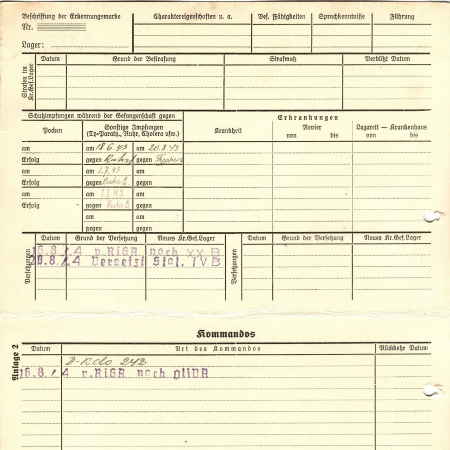 Beschriftung der Erkennungsmarke
Nr.
Lager:
Charaktereigenschaften u. a.
Bes. Fähigkeiten
Sprachkenntnisse
Führung
Strafen im Kr.Gef.Lager
Datum
Grund der Bestrafung
Strafmaß
Verbüßt Datum
Schutzimpfungen während der Gefangenschaft gegen
Erkrankungen
Pocken
Sonstige Impfungen
(Ty-Paraty., Ruhr, Cholera usw.)
Krankheit
Revier
von bis
Lazarett — Krankenhaus
von bis
am am 18.6.43 am 20.8.43
Erfolg gegen Ruhr gegen Typhus
am am 1.7.43 am
Erfolg gegen Ruhr 2 gegen
am am am
Erfolg gegen Ruhr 3 gegen
am am
gegen gegen
Versetzungen
Datum
Grund der Versetzung
Neues Kr.Gef.Lager
Versetzungen
Datum
Grund der Versetzung
Neues Kr.Gef.Lager
16.8.44 v. RIGA nach XX B
20.8.44 Versetzt Stal. IV B
Kommandos
Anlage 2
Datum
Art des Kommandos
Rückkehr Datum
D-Kdo 242
16.8.44 v. RIGA nach OLIVA